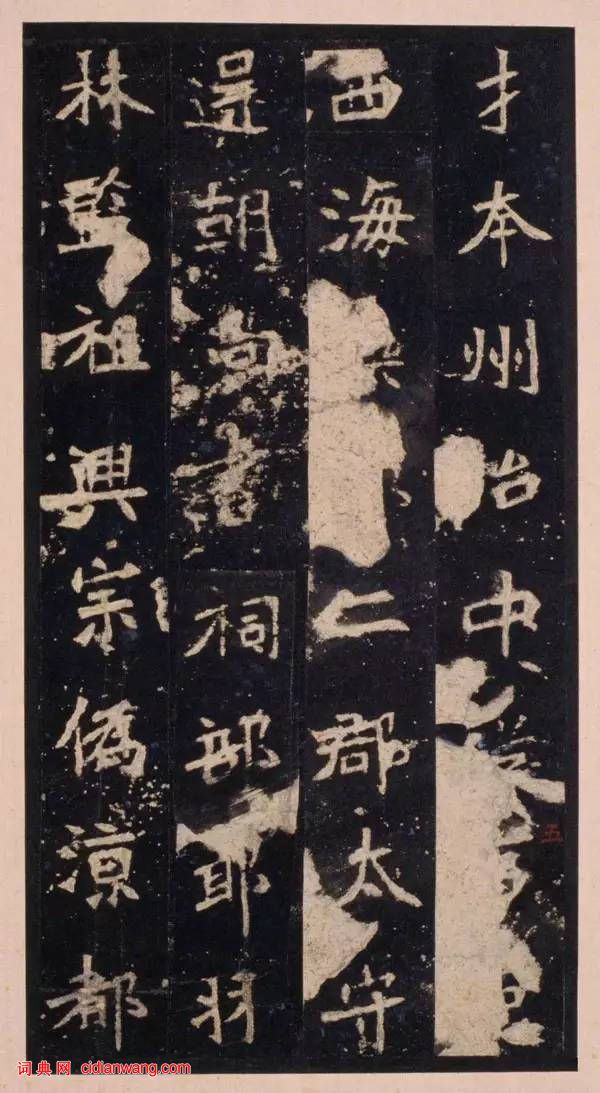 才本州治中
西海二郡太守
還朝尚書祠部郎羽
林監祖興宗偽涼都
五
词典网 cidianwang.com